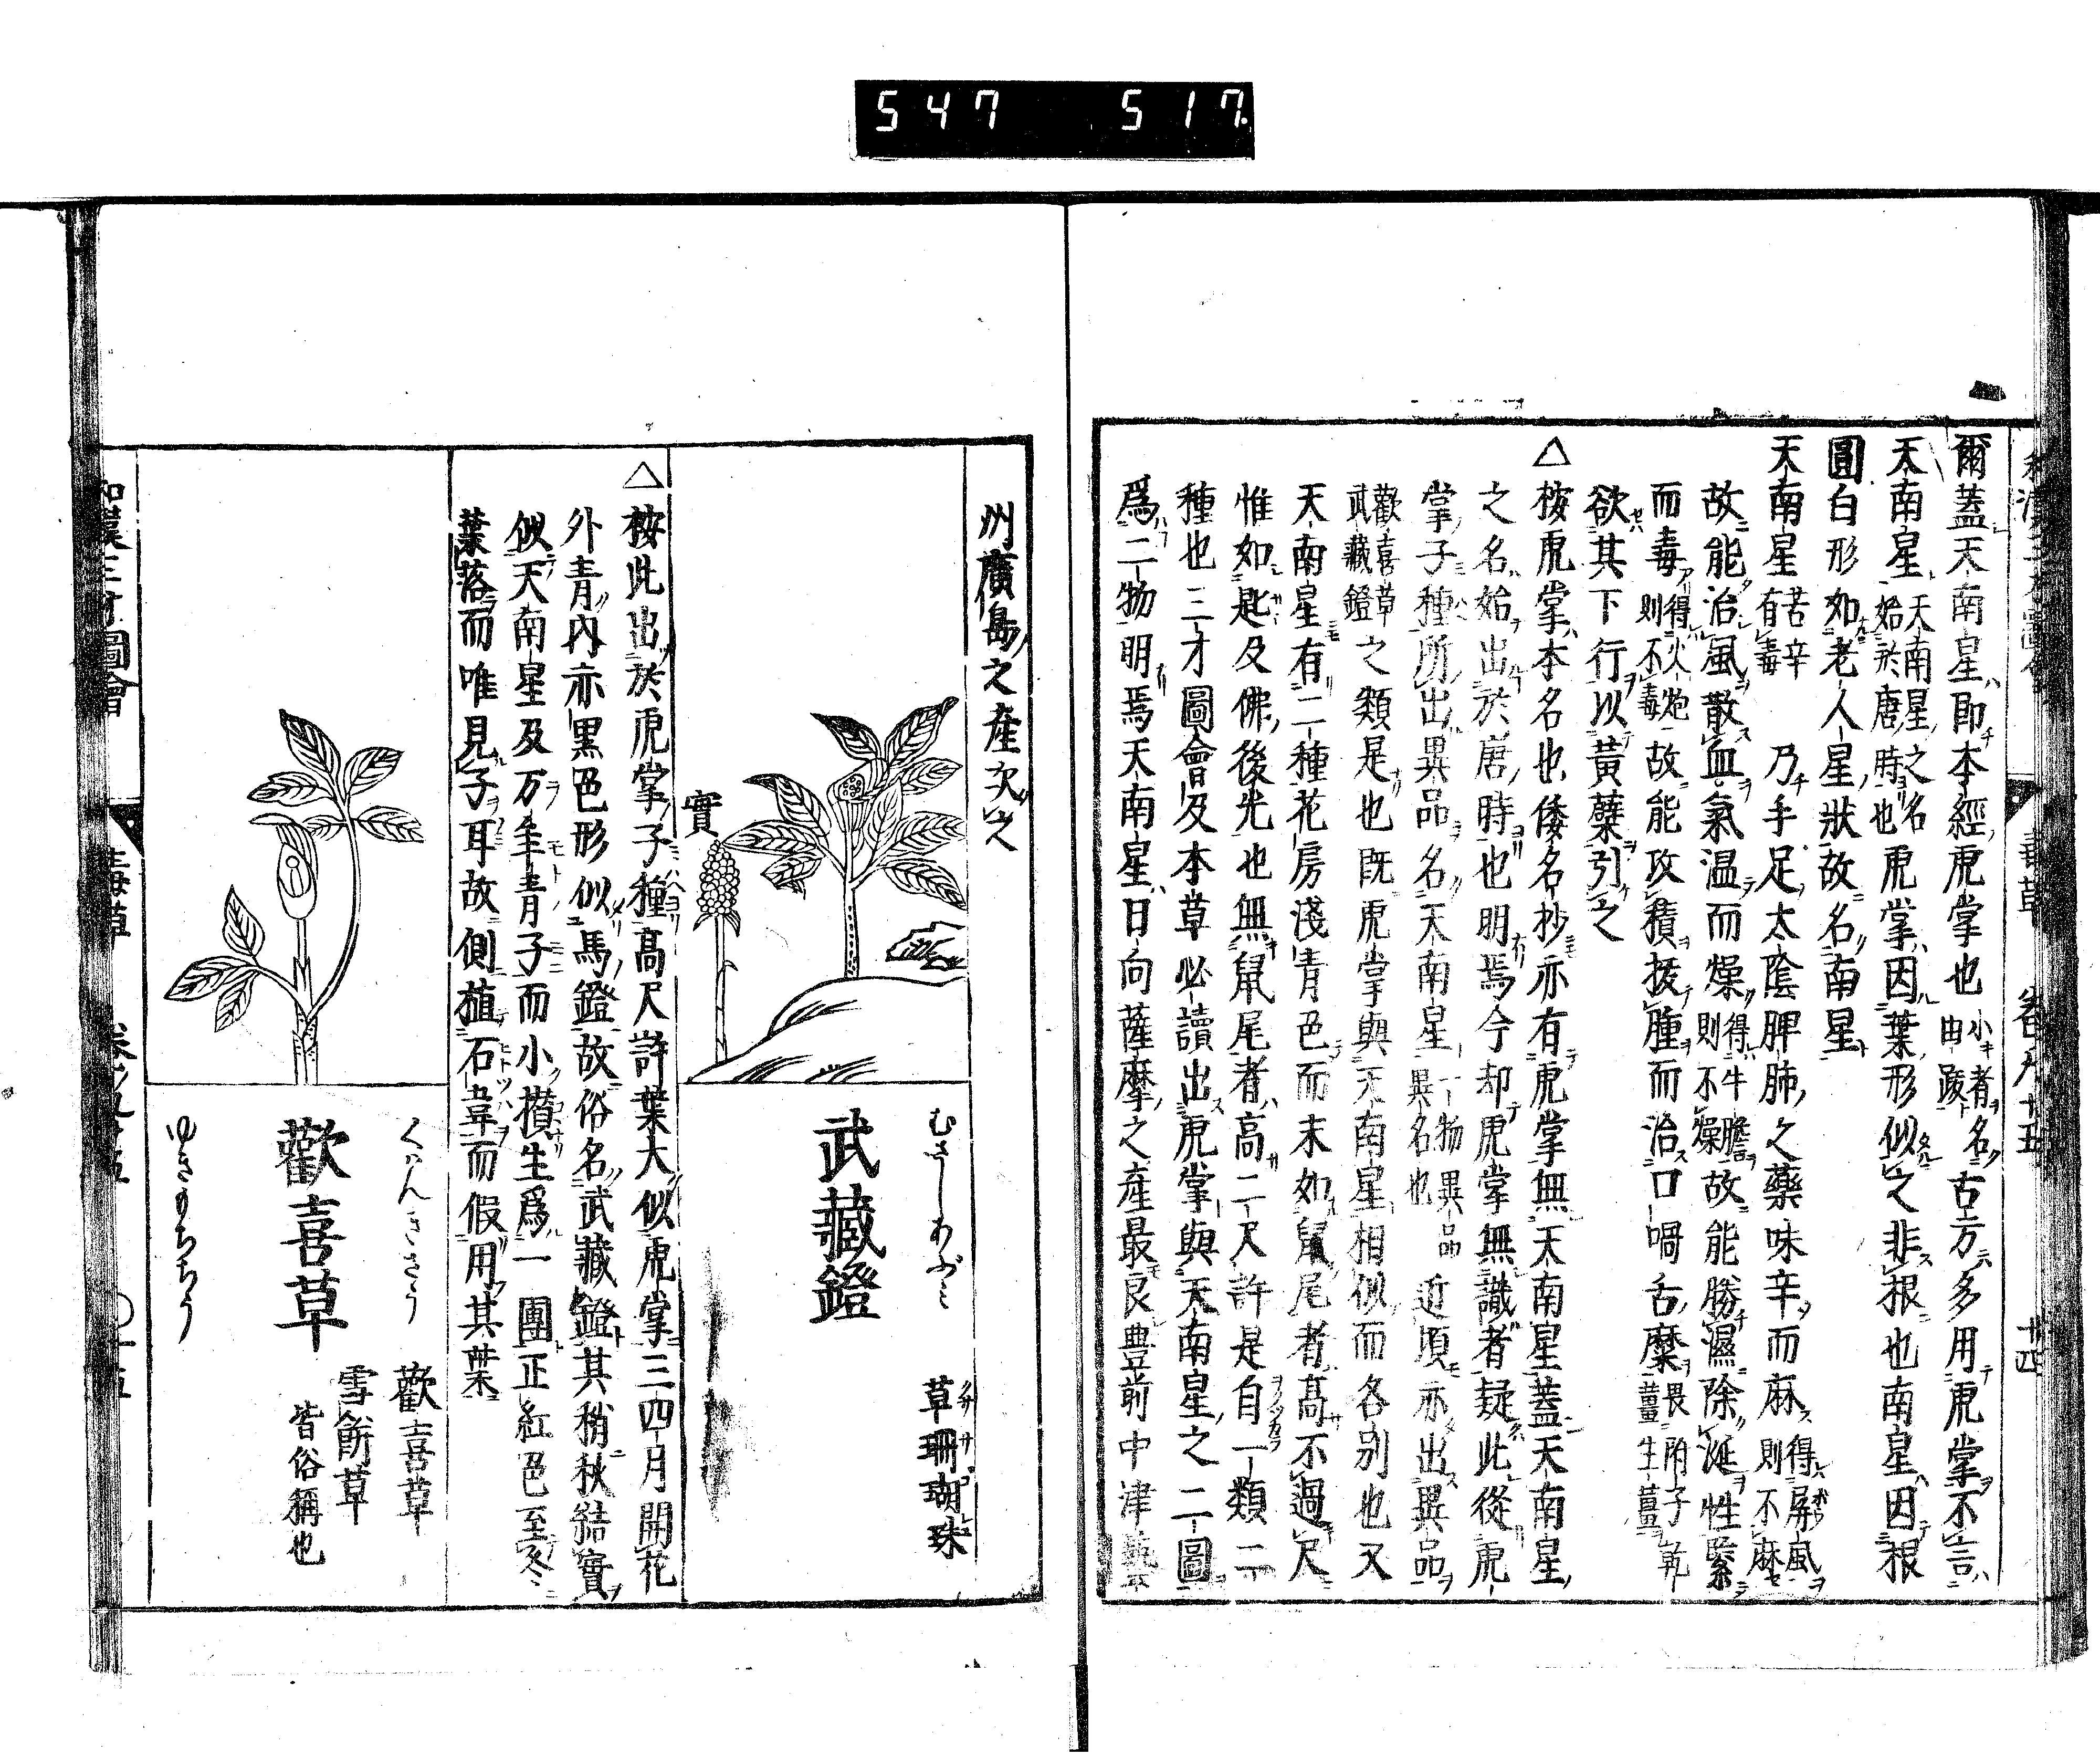 547 517
爾蓋天南星即本經虎掌也小者名由跋古方多用虎掌不言
天南星天南星之名始於唐時也虎掌因葉形似之非根也南星因根
圓白形如老人星狀故名南星
天南星苦辛有毒 乃手足太陰脾肺之藥味辛而麻得屏風則不麻
故能治風散血氣温而燥得牛膽則不燥故能勝濕除涎性緊
而毒得火炮則不毒故能攻積抜腫而治口喎舌糜畏附子乾薑生薑
欲其下行以黃蘗引之
△桉虎掌本名也倭名抄亦有虎掌無天南星蓋天南星
之名始出於唐時也明焉今却虎掌無識者疑此從虎
掌子種所出異品名天南星一物異品異名也近頃亦出異品
歡喜草武藏鐙之類是也既虎掌與天南星相似而各別也又
天南星有二種花房淺青色而末如鼠尾者髙不過尺
惟如匙及佛後光也無鼠尾者高二尺許是自一類二
種也三才圖會及本草必讀出虎掌與天南星之二圖
爲二物明焉天南星日向薩摩之産最良豊前中津藝
州廣島之産次之
實
むさしあぶミ
武藏鐙
草珊瑚珠
△桉此出於虎掌子種高尺許葉大似虎掌三四月開花
外青內亦黒色形似馬鐙故俗名武藏鐙其梢秋結實
似天南星及万年青子而小攅生爲一團正紅色至冬
葉落而唯見子耳故側植石韋而假用其葉
くハんきさう
歡喜草
ゆきもちさう
歡喜草
雪餅草
皆俗稱也
和漢三才圖會 毒草 卷ノ九十五 〇十五